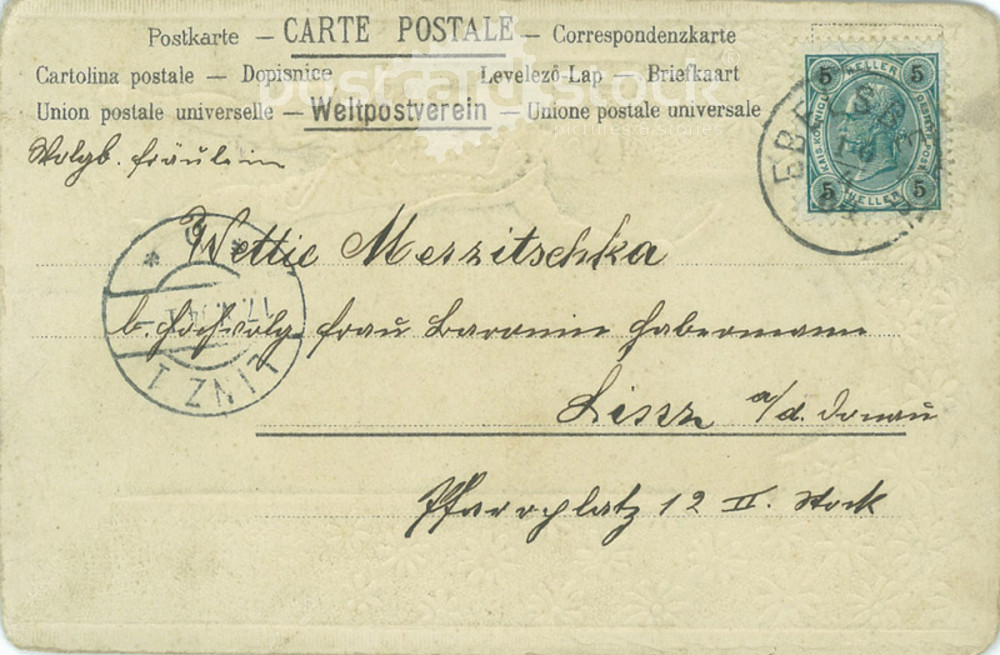 Postkarte – CARTE POSTALE – Correspondenzkarte
Cartolina postale – Dopisnice Levelező-Lap – Briefkaart
Union postale universelle – Weltpostverein – Unione postale universale
postcard stock
pictures & stories
5 HELLER 5
5 HELLER 5
EBELSBE
Wolgb. Fräulein
Wettie Merzitschka
b. Hochwolg. Frau Baronin Habermann
Linz a/d. Donau
Pfarrplatz 12 II. Stock
LINZ 1